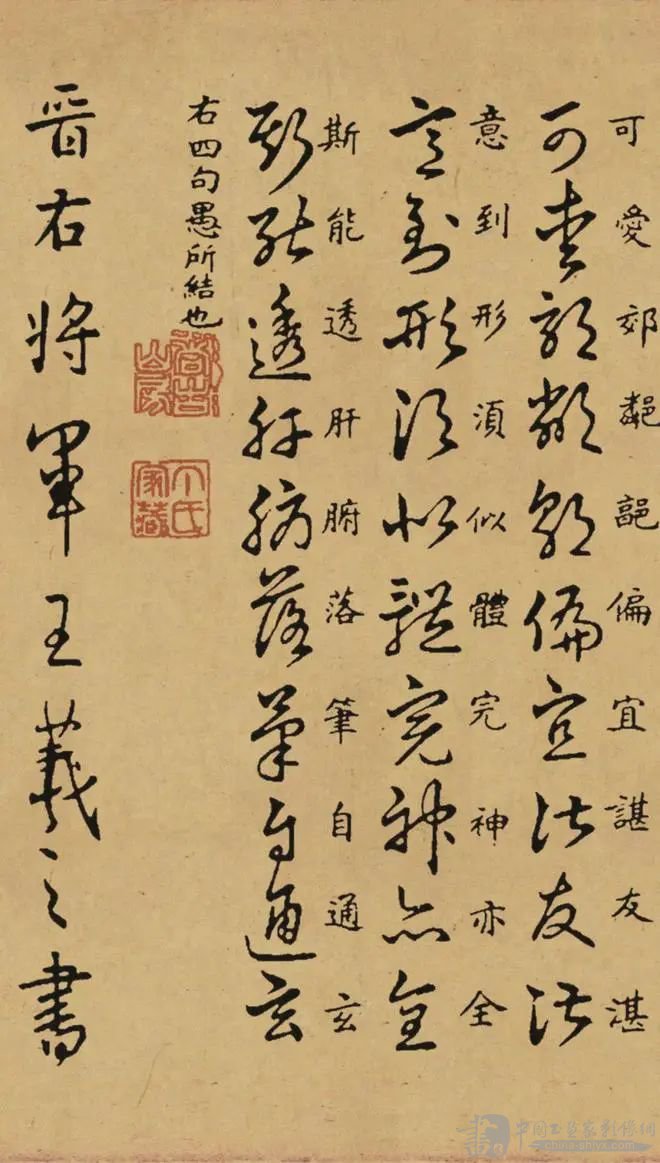 可愛郊偏宜諶友湛
可愛郊偏宜諶友湛
意到形須似體完神亦全
意到形須似體完神亦全
斯能透肝腑落筆自通玄
斯能透肝腑落筆自通玄
右四句愚所結也
氏家藏
晉右將軍王羲之書
china-shiyx.com